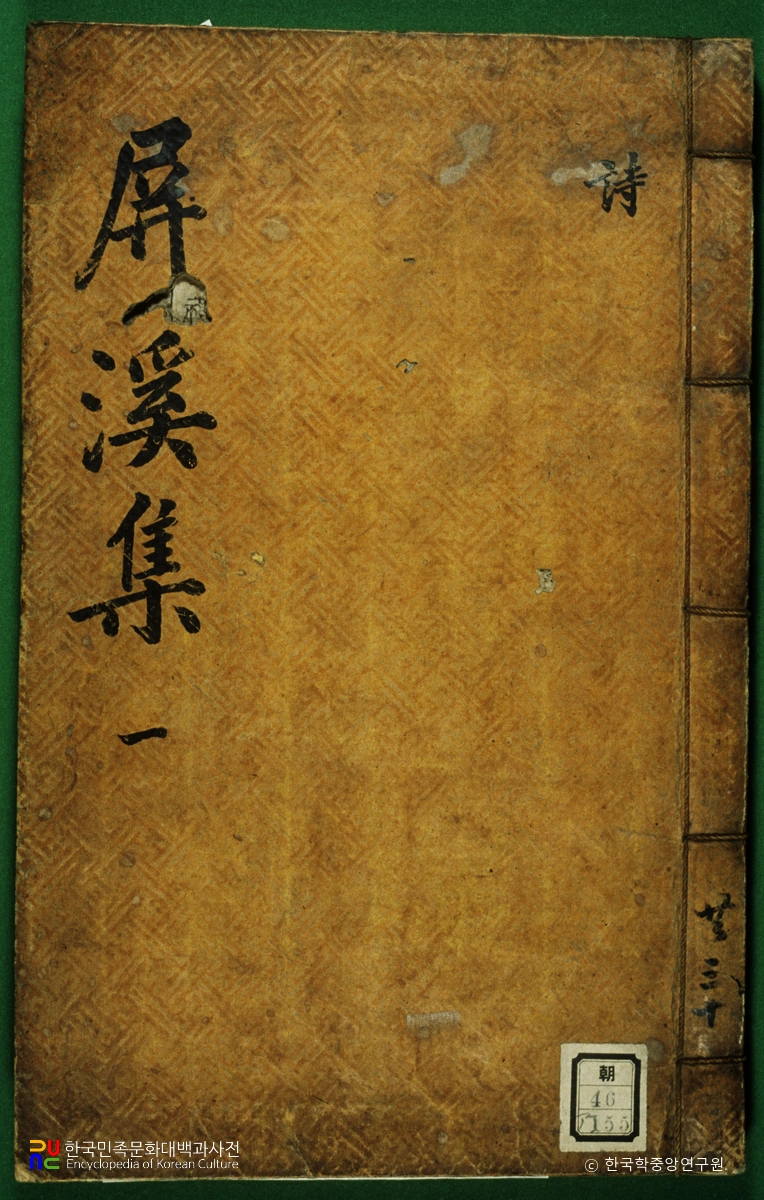 詩
屏溪集 一
共三十
朝
46
155
한국민족문화대백과사전
Encyclopedia of Korean Culture
© 한국학중앙연구원